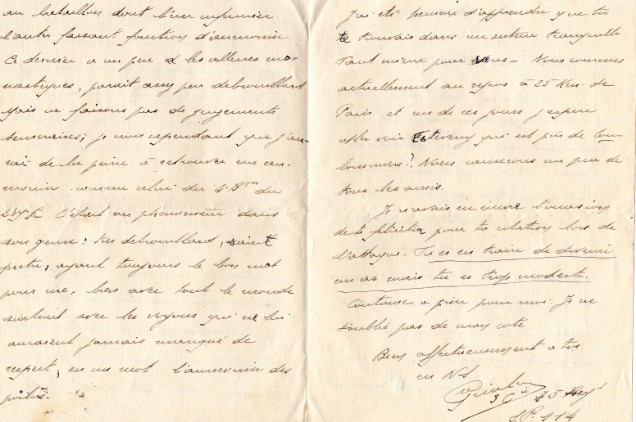 au bataillon dont l'un infirmier
l'autre faisant fonctions d'aumonier
Ce dernier a un peu les allures mo-
nastiques, parait assez peu débrouillard
Mais ne faisons pas de jugements
téméraires; je crois cependant que j'au-
rai de la peine à retrouver un au-
monier comme celui du 4e Bon du
C'était un phénomène dans
son genre: très débrouillard, saint
pretre, ayant toujours le bon mot
pour rire, bien avec tout le monde
surtout avec les voyous qui ne lui
auraient jamais manqué de
respect, en un mot l'aumonier des
poilus.
J'ai été heureux d'apprendre que tu
te trouvais dans un secteur tranquille
Tant mieux pour vous - Nous sommes
actuellement au repos à 25 Km. de
Paris et un de ces jours j'espère
aller voir qui est près de Cou-
lommiers? Nous sommes un peu de
tous les
Je n'avais encore l'occasion
de te féliciter pour ta citation lors de
l'attaque. Tu es en train de devenir
un as mais tu es trop modeste.
Continue a prier pour moi. Je ne
t'oublie pas de mon coté
Bien affectueusement a toi
en NS
25
SP. 114